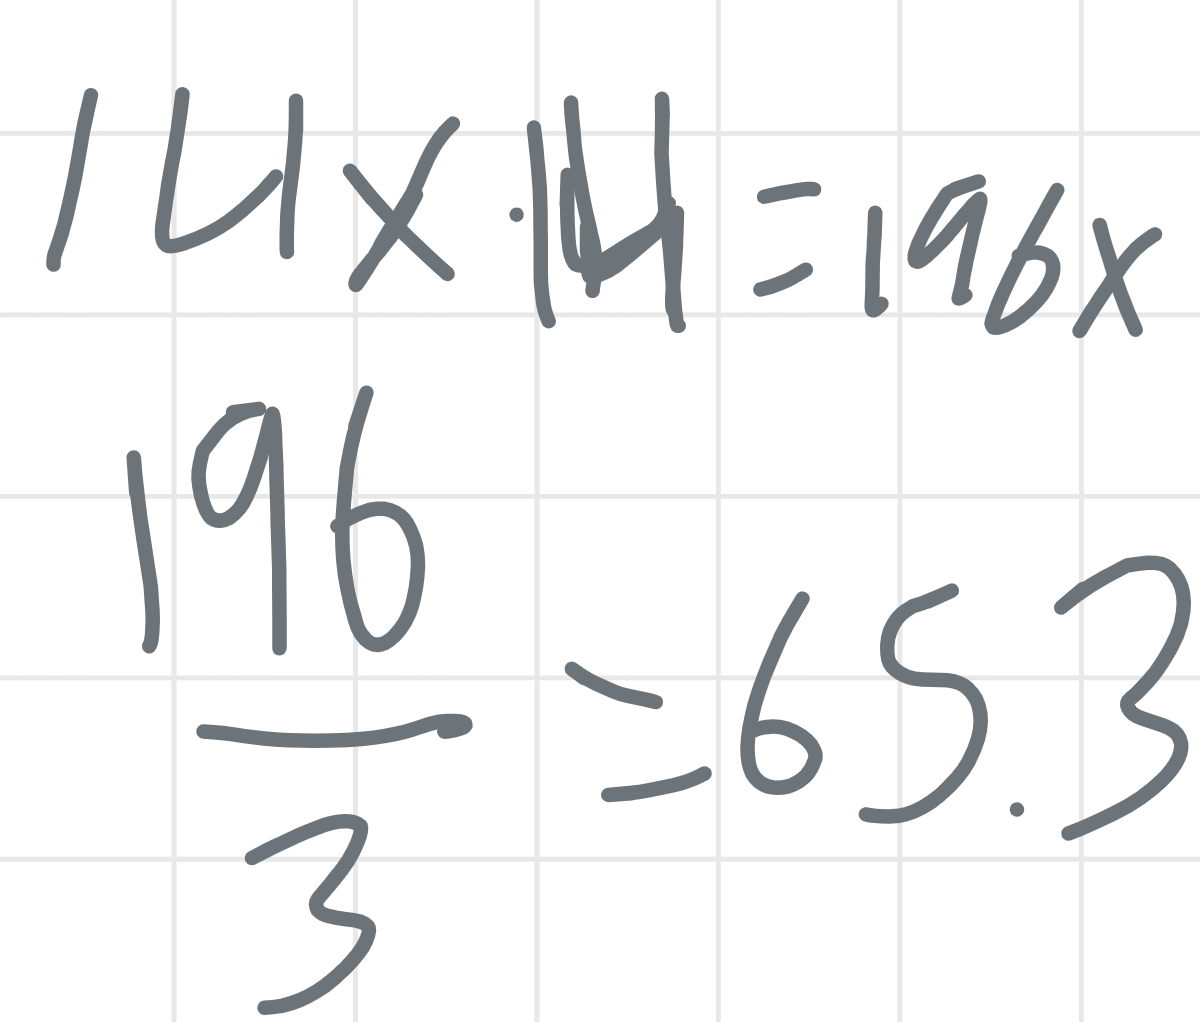 14x · 14 = 196x
196
3
= 65.3